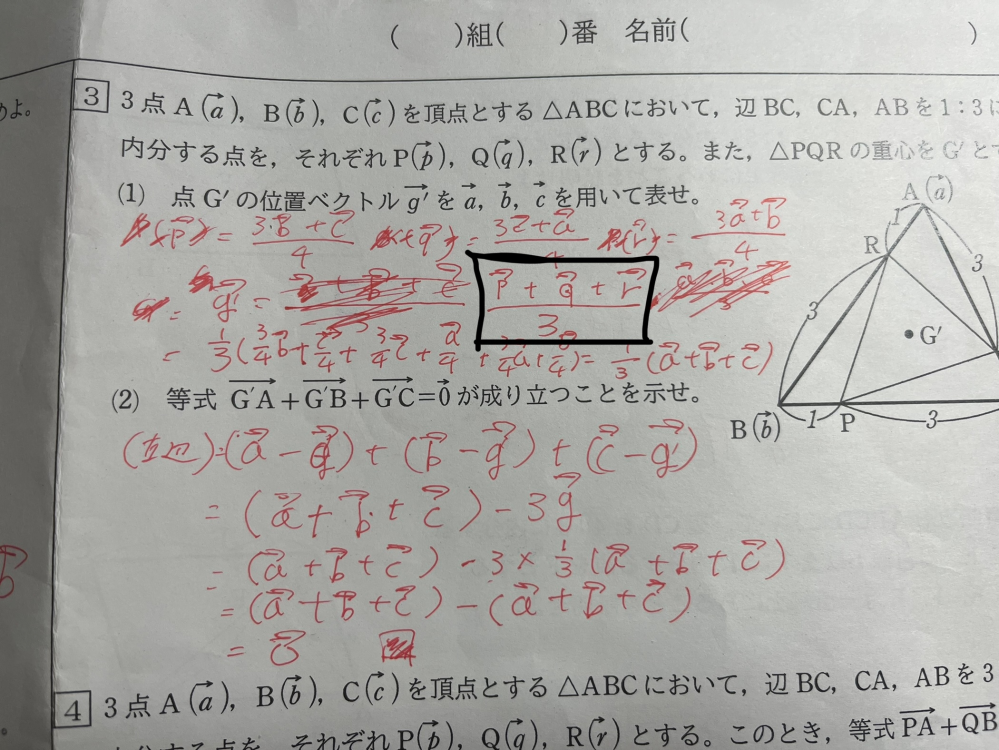 ( )組( )番 名前( )
めよ。
3 3点 A(a→), B(b→), C(c→) を頂点とする △ABC において, 辺 BC, CA, AB を 1:3 に
内分する点を, それぞれ P(p→), Q(q→), R(r→) とする。また, △PQR の重心を G′ とす
(1) 点 G′ の位置ベクトル g′→ を a→, b→, c→ を用いて表せ。
= (3b→+c→)/4 = (3c→+a→)/4 = (3a→+b→)/4
= g′→ = (p→+q→+r→)/3
= 1/3(3/4 b→ + c→/4 + 3/4 c→ + a→/4 + 3/4 a→ + b→/4) = 1/3(a→+b→+c→)
(2) 等式 G′A→+G′B→+G′C→=0→ が成り立つことを示せ。
(左辺)=(a→−g′→)+(b→−g′→)+(c→−g′→)
= (a→+b→+c→)−3g→
= (a→+b→+c→)−3×1/3(a→+b→+c→)
= (a→+b→+c→)−(a→+b→+c→)
= 0→
A(a→)
1
R
3
3
G′
B(b→)
1
P
3
b→
4 3点 A(a→), B(b→), C(c→) を頂点とする △ABC において, 辺 BC, CA, AB を 3
内分する点を, それぞれ P(p→), Q(q→), R(r→) とする。このとき, 等式 PA→+QB→